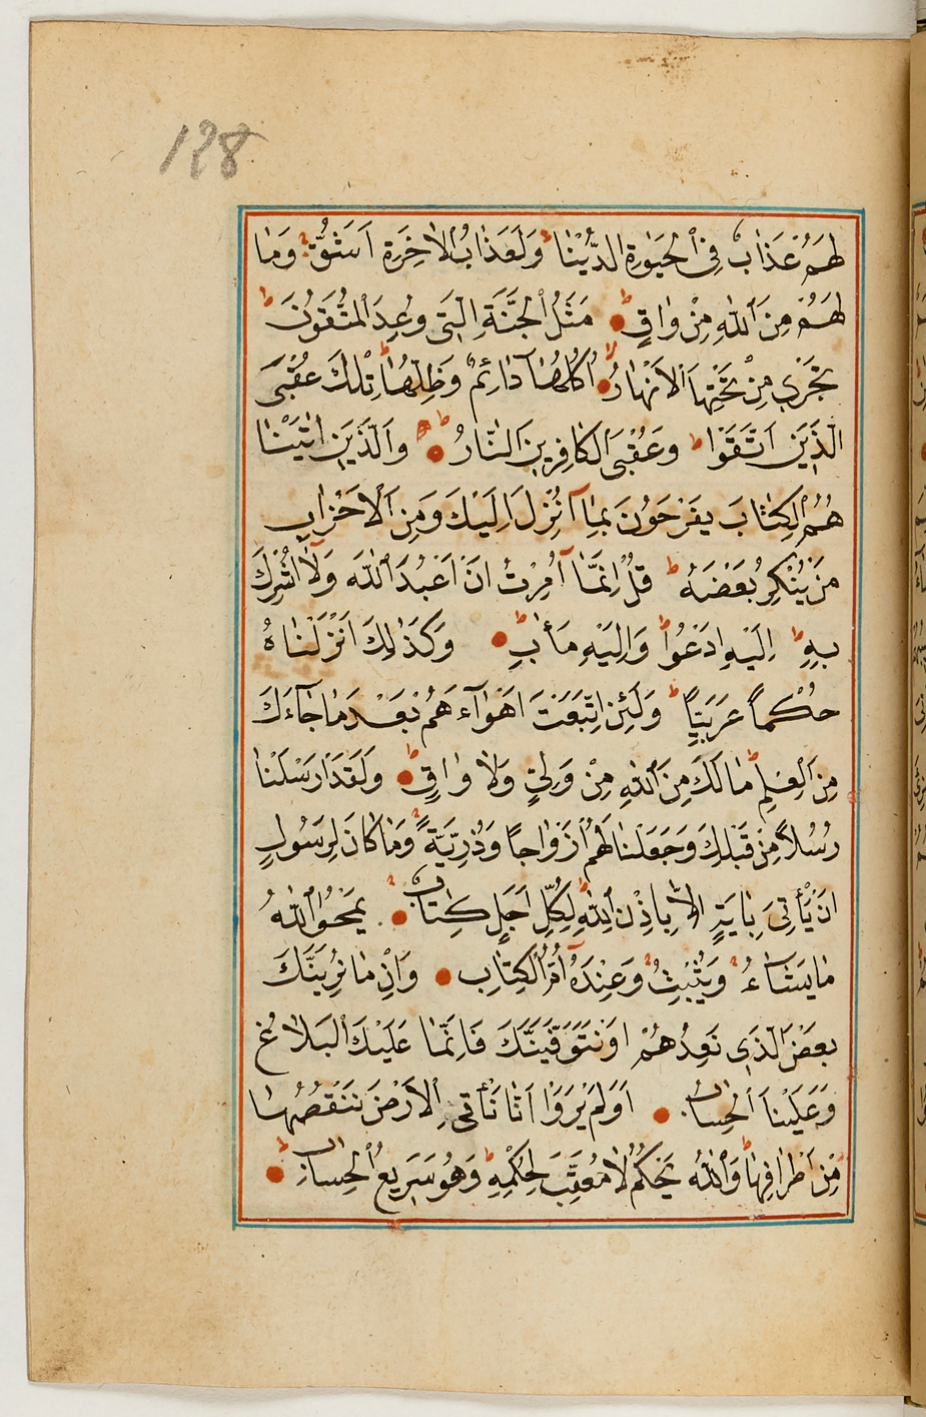 128
لَهُمْ عَذَابٌ فِي الْحَيٰوةِ الدُّنْيَا وَلَعَذَابُ الْاٰخِرَةِ اَشَقُّ وَمَا
لَهُمْ مِنَ اللّٰهِ مِنْ وَاقٍ مَثَلُ الْجَنَّةِ الَّتِي وُعِدَ الْمُتَّقُونَ
تَجْرِي مِنْ تَحْتِهَا الْاَنْهَارُ اُكُلُهَا دَائِمٌ وَظِلُّهَا تِلْكَ عُقْبَى
الَّذِينَ اتَّقَوْا وَعُقْبَى الْكَافِرِينَ النَّارُ وَالَّذِينَ اٰتَيْنَا
هُمُ الْكِتَابَ يَفْرَحُونَ بِمَا اُنْزِلَ اِلَيْكَ وَمِنَ الْاَحْزَابِ
مَنْ يُنْكِرُ بَعْضَهُ قُلْ اِنَّمَا اُمِرْتُ اَنْ اَعْبُدَ اللّٰهَ وَلَا اُشْرِكَ
بِهِ اِلَيْهِ اَدْعُوا وَاِلَيْهِ مَاٰبِ وَكَذٰلِكَ اَنْزَلْنَاهُ
حُكْماً عَرَبِيّاً وَلَئِنِ اتَّبَعْتَ اَهْوَاۤءَهُمْ بَعْدَ مَا جَاۤءَكَ
مِنَ الْعِلْمِ مَا لَكَ مِنَ اللّٰهِ مِنْ وَلِيٍّ وَلَا وَاقٍ وَلَقَدْ اَرْسَلْنَا
رُسُلاً مِنْ قَبْلِكَ وَجَعَلْنَا لَهُمْ اَزْوَاجًا وَذُرِّيَّةً وَمَا كَانَ لِرَسُولٍ
اَنْ يَأْتِيَ بِاٰيَةٍ اِلَّا بِاِذْنِ اللّٰهِ لِكُلِّ اَجَلٍ كِتَابٌ يَمْحُوا اللّٰهُ
مَا يَشَاۤءُ وَيُثْبِتُ وَعِنْدَهُ اُمُّ الْكِتَابِ وَاِنْ مَا نُرِيَنَّكَ
بَعْضَ الَّذِي نَعِدُهُمْ اَوْ نَتَوَفَّيَنَّكَ فَاِنَّمَا عَلَيْكَ الْبَلَاغُ
وَعَلَيْنَا الْحِسَابُ اَوَلَمْ يَرَوْا اَنَّا نَأْتِي الْاَرْضَ نَنْقُصُهَا
مِنْ اَطْرَافِهَا وَاللّٰهُ يَحْكُمُ لَا مُعَقِّبَ لِحُكْمِهِ وَهُوَ سَرِيعُ الْحِسَابِ